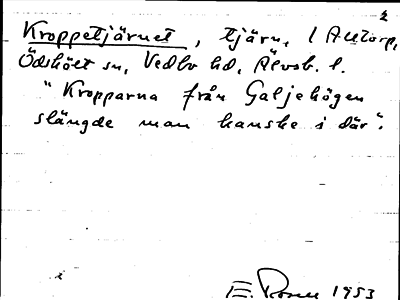 2
Kroppetjärnet, tjärn, l Alltorp,
Ödskölt sn, Vedbo hd, Älvsb. l.
"Kropparna från Galjehögen
slängde man kanske i där".
E. Rosell 1953